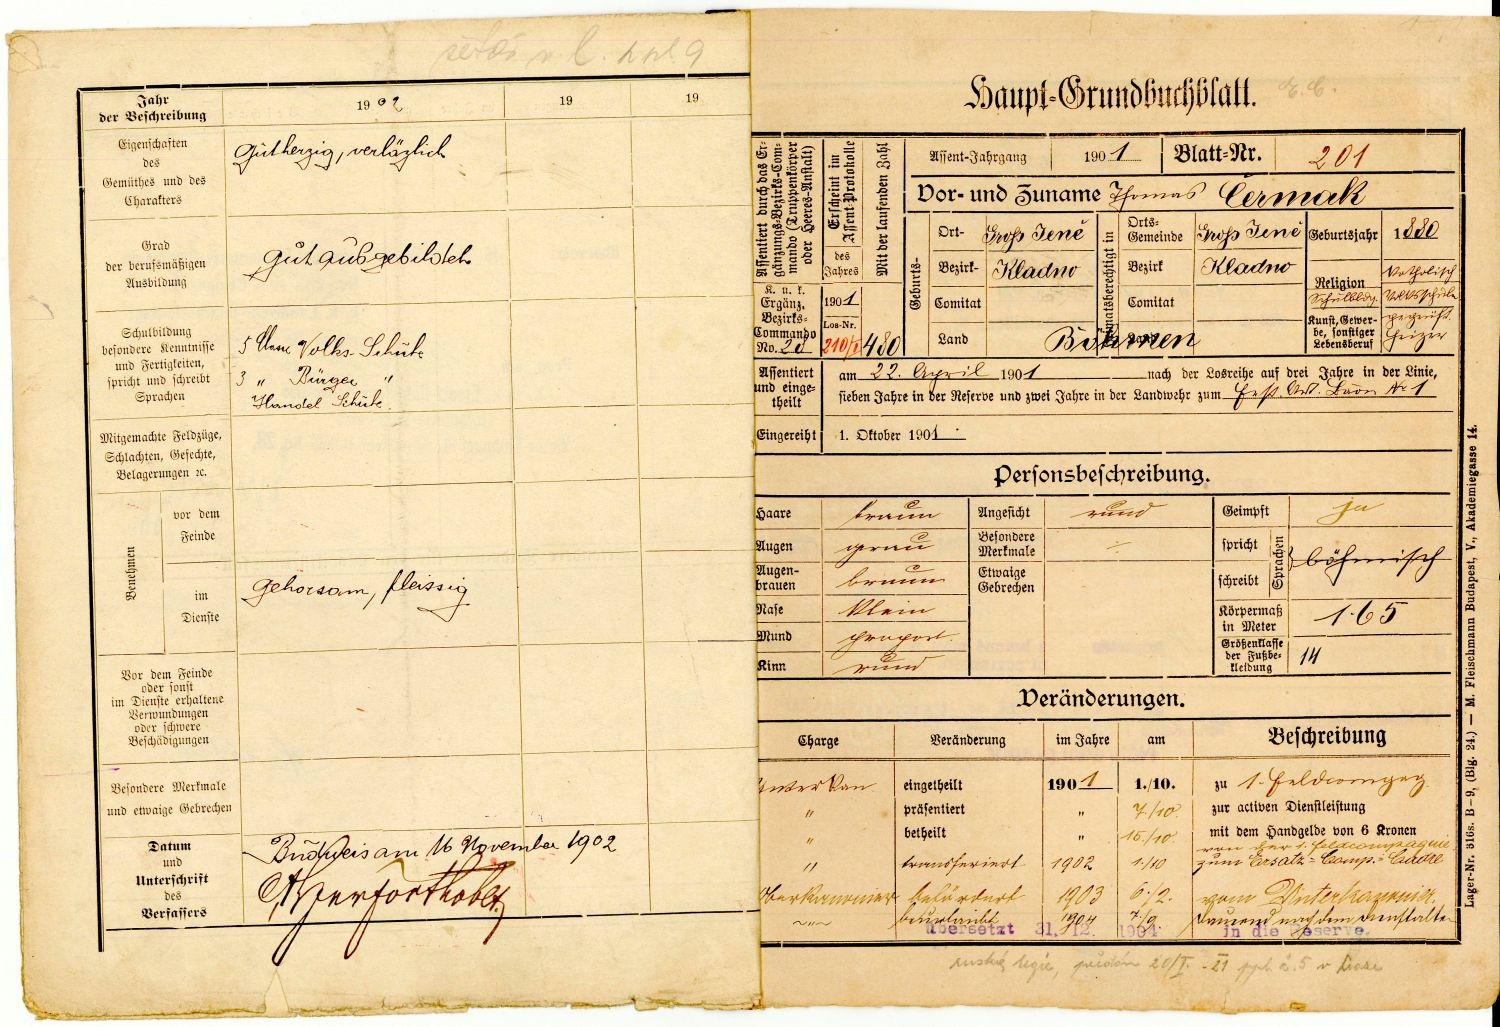 Jahr
der Beschreibung
1902
19
19
Eigenschaften
des
Gemüthes und des
Charakters
gutherzig, verläßlich
Grad
der berufsmäßigen
Ausbildung
gut ausgebildet
Schulbildung
besondere Kenntnisse
und Fertigkeiten,
spricht und schreibt
Sprachen
5 Volks Schule
3 „ Bürger „
Handel Schule
Mitgemachte Feldzüge,
Schlachten, Gefechte,
Belagerungen ꝛc.
Benehmen
vor dem
Feinde
im
Dienste
gehorsam, fleissig
Vor dem Feinde
oder sonst
im Dienste erhaltene
Verwundungen
oder schwere
Beschädigungen
Besondere Merkmale
und etwaige Gebrechen
Datum
und
Unterschrift
des
Verfassers
Budweis am 16 November 1902
Haupt-Grundbuchblatt.
Assentiert durch das Er-
gänzungs-Bezirks-Com-
mando (Truppenkörper
oder Heeres-Anstalt)
Erscheint im
Assent-Protokolle
des
Jahres
Mit der laufenden Zahl
K. u. k.
Ergänz.
Bezirks-
Commando
No. 28
1901
Los-Nr.
210/I
480
Assent-Jahrgang
1901
Blatt-Nr.
201
Vor- und Zuname Thomas Čermak
Geburts-
Ort-
Gross Jeně
Bezirk-
Kladno
Comitat
Land
Böhmen
Heimatsberechtigt in
Orts-
Gemeinde
Gross Jeně
Bezirk
Kladno
Comitat
Geburtsjahr
1880
Religion
katholisch
Schulbldg.
Volksschule
Kunst, Gewer-
be, sonstiger
Lebensberuf
geprüft.
Heizer
Assentiert
und einge-
theilt
am 22. April 1901 nach der Losreihe auf drei Jahre in der Linie,
sieben Jahre in der Reserve und zwei Jahre in der Landwehr zum Fest. Art. Baon No 1
Eingereiht
1. Oktober 1901
Personsbeschreibung.
Haare braun
Augen grau
Augen-
brauen braun
Nase klein
Mund propor.
Kinn rund
Angesicht rund
Besondere
Merkmale ÷
Etwaige
Gebrechen
Geimpft ja
spricht
schreibt
Sprachen
böhmisch
Körpermaß
in Meter 1·65
Größenklasse
der Fußbe-
kleidung 14
Veränderungen.
Charge Veränderung im Jahre am Beschreibung
Unterkan eingetheilt 1901 1./10. zu 1. Feldcompag
„ präsentiert „ 7/10 zur activen Dienstleistung
„ betheilt „ 16/10 mit dem Handgelde von 6 Kronen
von der 1. Feldcompagnie
„ transferiert 1902 1/10 zum Ersatz-Comp.-Cadre
Oberkanonier befördert 1903 6/2. vom Unterkanonier
„ beurlaubt 1904 7/9 dauernd nach dem
übersetzt 31. 12. 1904 in die Reserve.
legie, 20/I - 21 č. 5 v
Lager-Nr. 316s. B-9, (Blg. 24.) — M. Fleischmann Budapest, V., Akademiegasse 14.